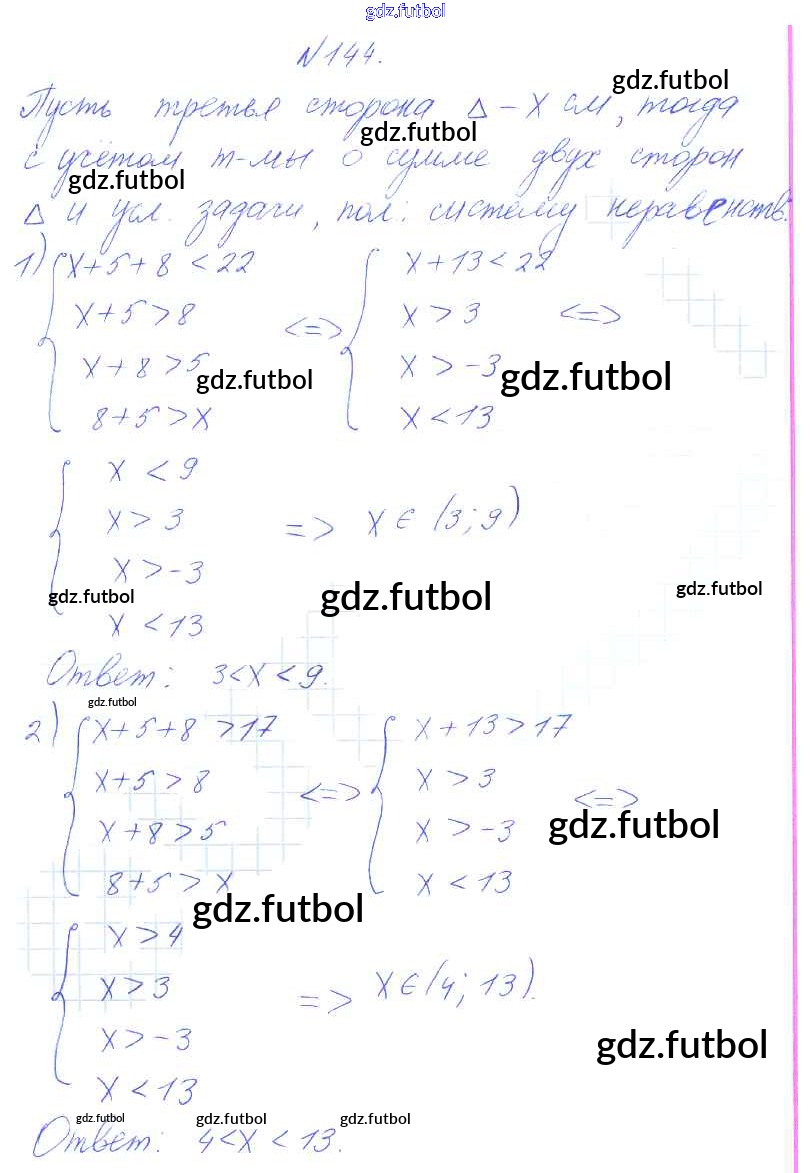 gdz.futbol
№144.
gdz.futbol
Пусть третья сторона Δ – x см, тогда
gdz.futbol
с учётом т-мы о сумме двух сторон
gdz.futbol
Δ и усл. задачи, пол.: систему неравенств:
1) { x+5+8 < 22 { x+13 < 22
x+5 > 8 <=> x > 3 <=>
x+8 > 5 x > -3
gdz.futbol gdz.futbol
8+5 > x x < 13
{ x < 9
x > 3 => x ∈ (3; 9)
x > -3
gdz.futbol gdz.futbol gdz.futbol
x < 13
Ответ: 3 < x < 9.
gdz.futbol
2) { x+5+8 > 17 { x+13 > 17
x+5 > 8 <=> x > 3 <=>
x+8 > 5 x > -3
gdz.futbol
8+5 > x x < 13
gdz.futbol
{ x > 4
x > 3 => x ∈ (4; 13).
x > -3
gdz.futbol
x < 13
gdz.futbol gdz.futbol gdz.futbol
Ответ: 4 < x < 13.